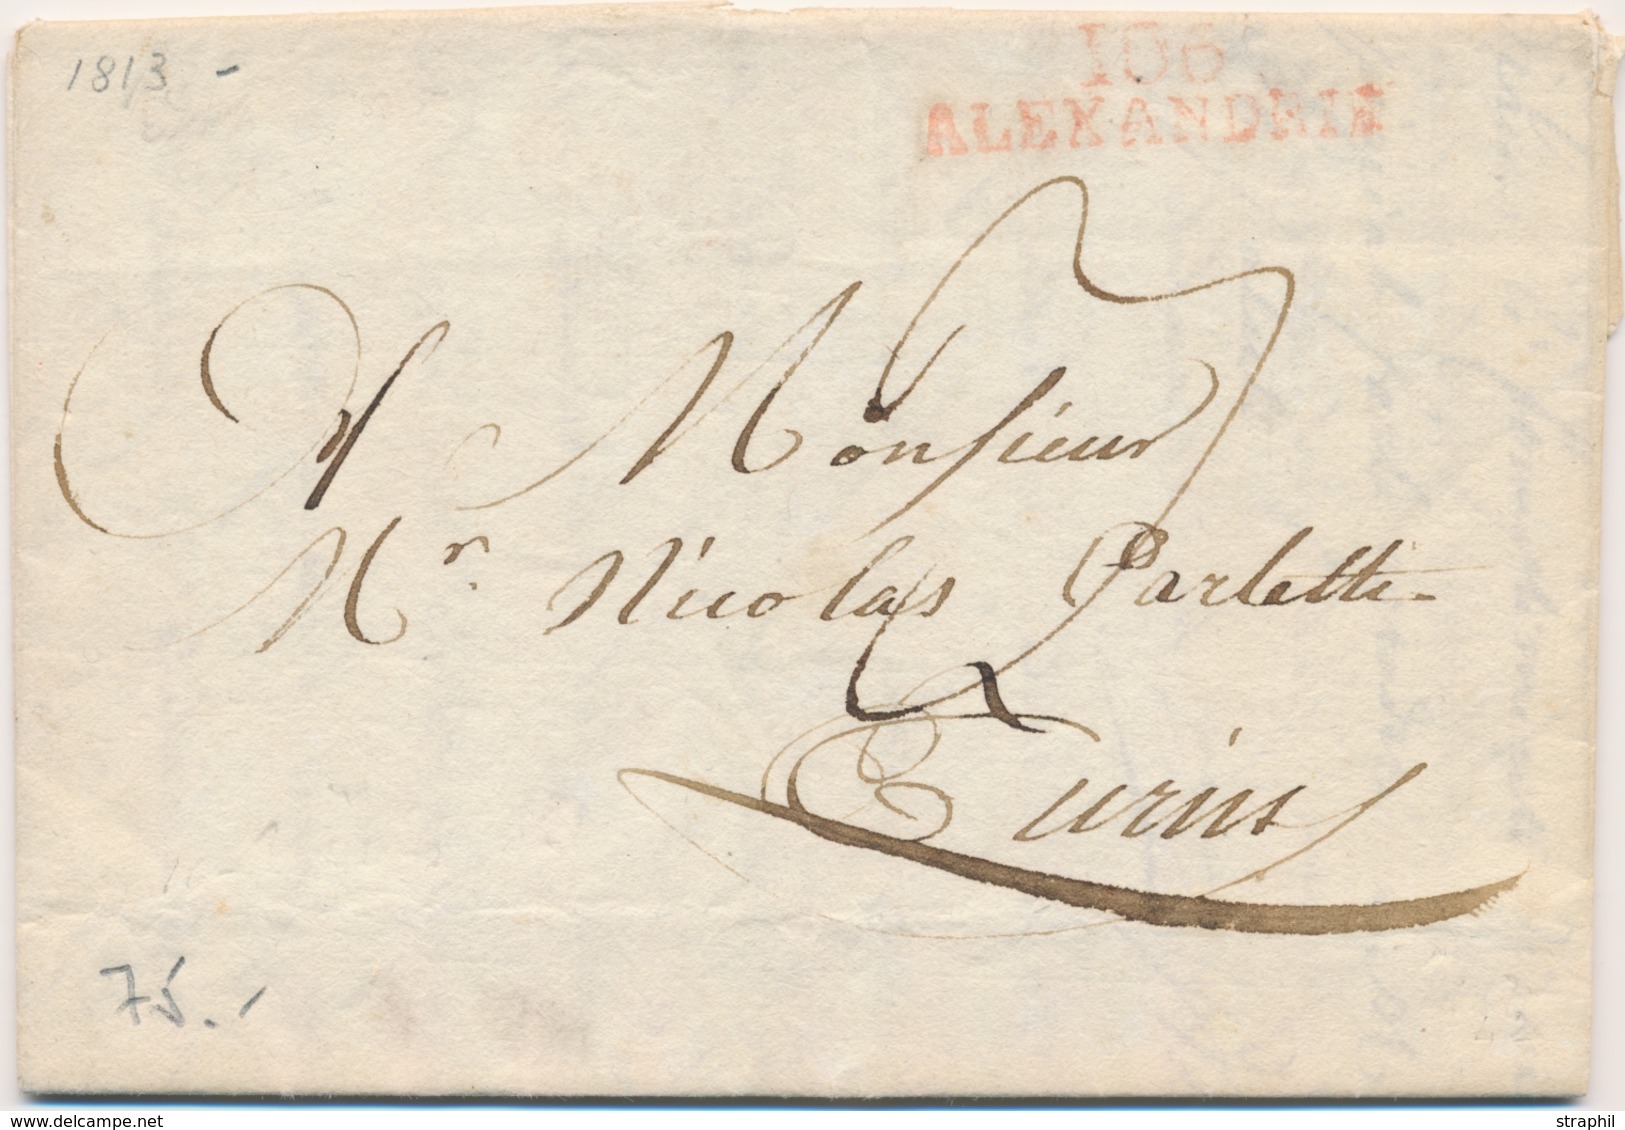 1813 -
106
ALEXANDRIE
A Monsieur
Mr. Nicolas Parletti
Turin
75.-
delcampe.net
straphil